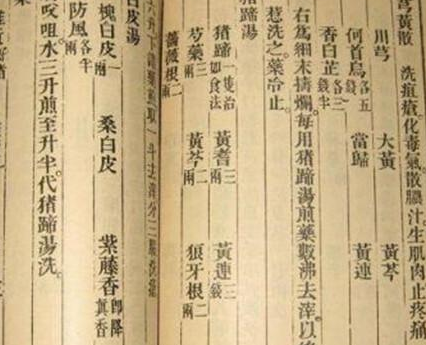 芎黃散 洗痕瘡。化毒氣。散膿汁。生肌肉。止疼痛
川芎 大黃 黃芩
何首烏各五錢 當歸 黃連
香白芷
右為細末擣爛。每用豬蹄湯煎藥數沸去滓。以
惹洗之。藥冷止。
豬蹄湯
豬蹄一隻治如食法 黃耆三兩 黃連三錢
芍藥三兩 黃芩二兩 狼牙根二兩
薔薇根二兩
白皮湯
槐白皮一兩 桑白皮 紫藤香即降真香
防風各半兩
㕮咀水三升煎至升半代豬蹄湯洗。